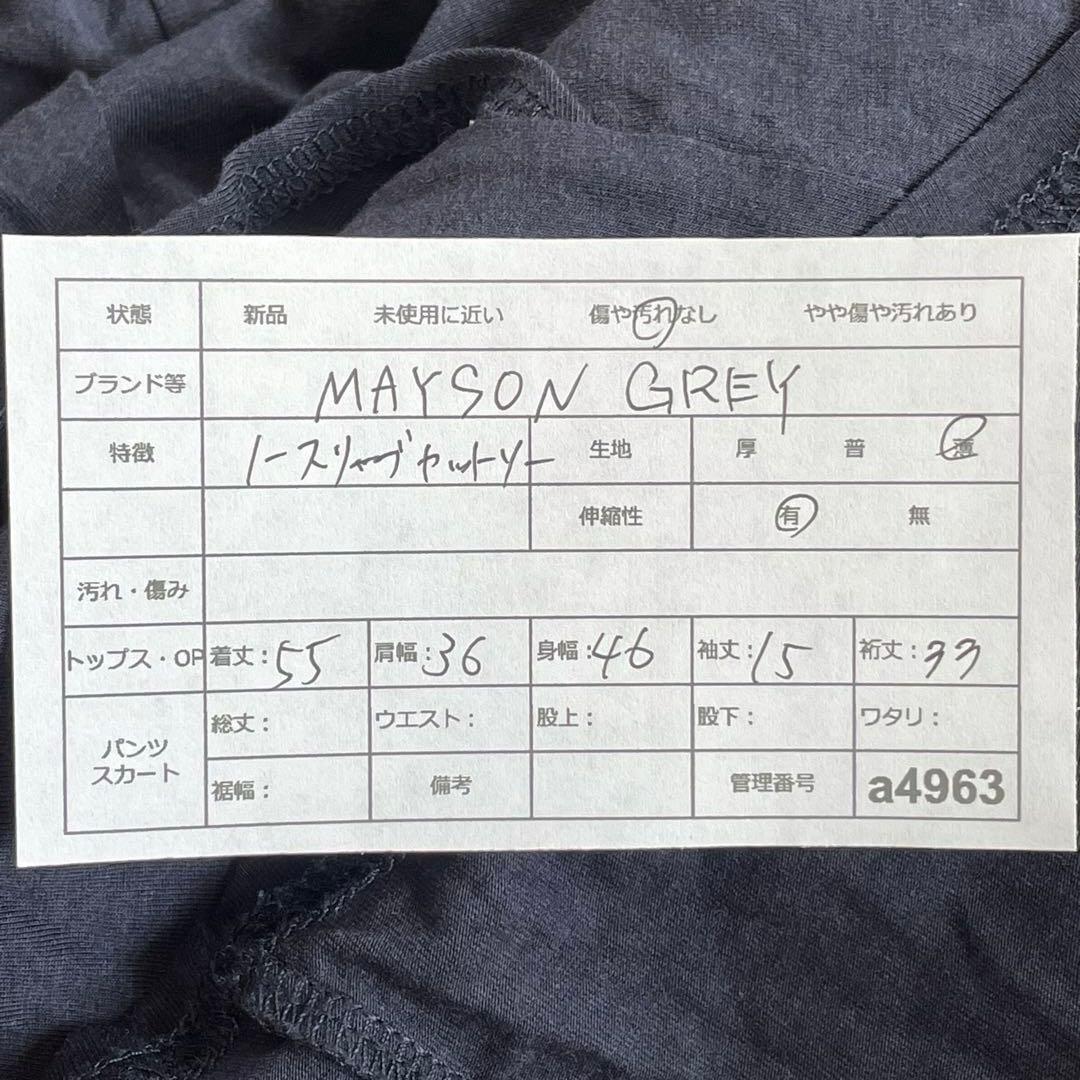 状態 新品 未使用に近い 傷や汚れなし やや傷や汚れあり
ブランド等 MAYSON GREY
特徴 ノースリーブカットソー 生地 厚 普 薄
伸縮性 有 無
汚れ・傷み
トップス・OP 着丈:55 肩幅:36 身幅:46 袖丈:15 裄丈:33
パンツ スカート 総丈: ウエスト: 股上: 股下: ワタリ:
裾幅: 備考 管理番号 a4963